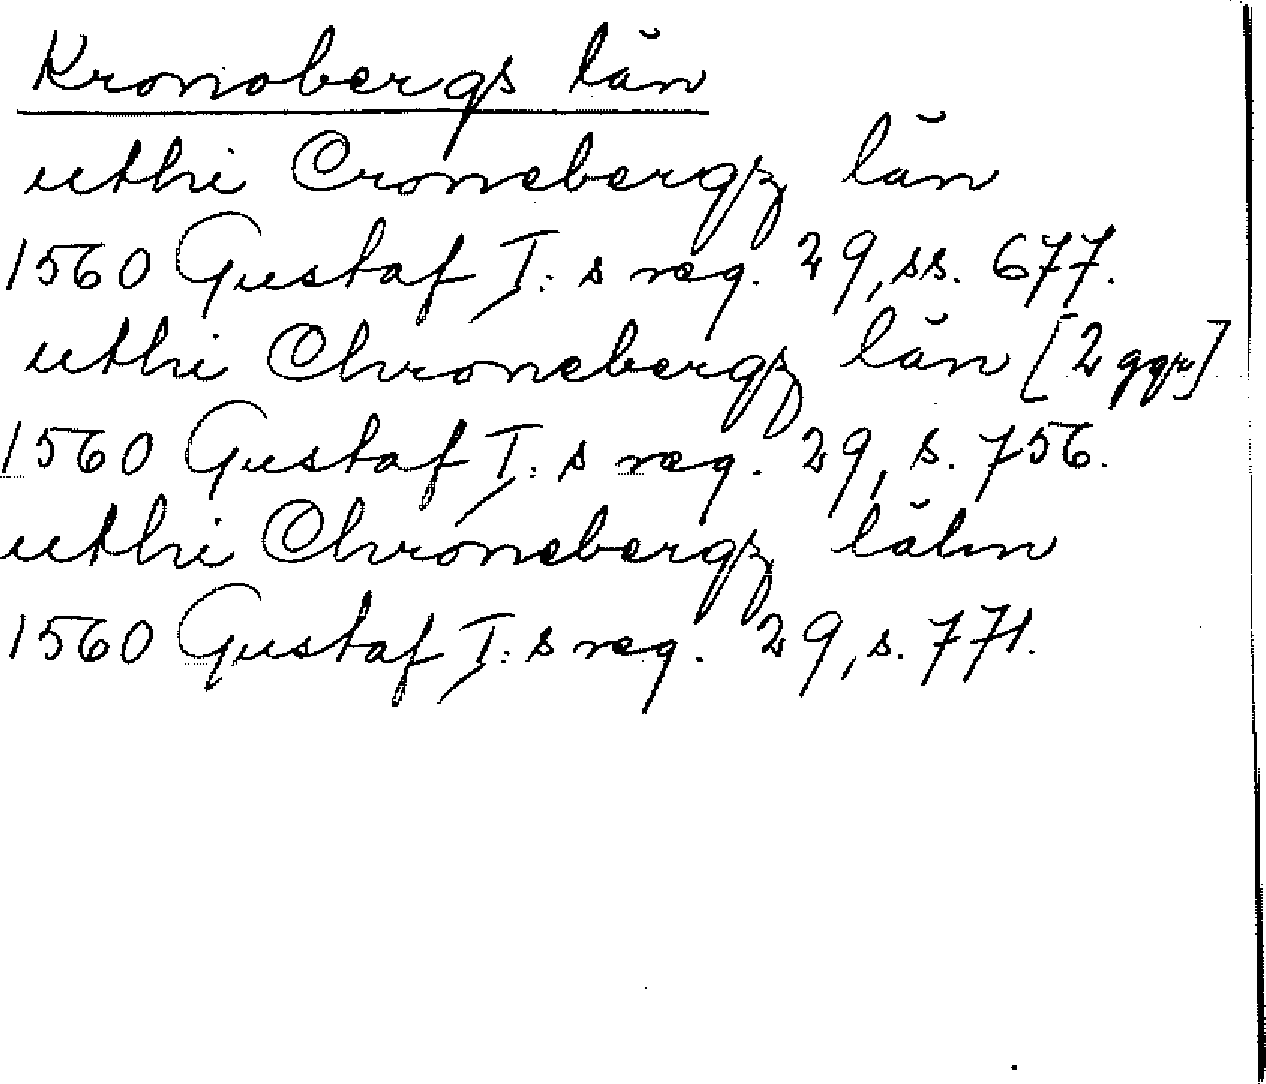 Kronobergs län
uthi Cronebergz län
1560 Gustaf I: s reg. 29, ss. 677.
uthi Chronebergz län [2 ggr]
1560 Gustaf I: s reg. 29, s. 756.
uthi Chronebergz lähn
1560 Gustaf I: s reg. 29, s. 771.